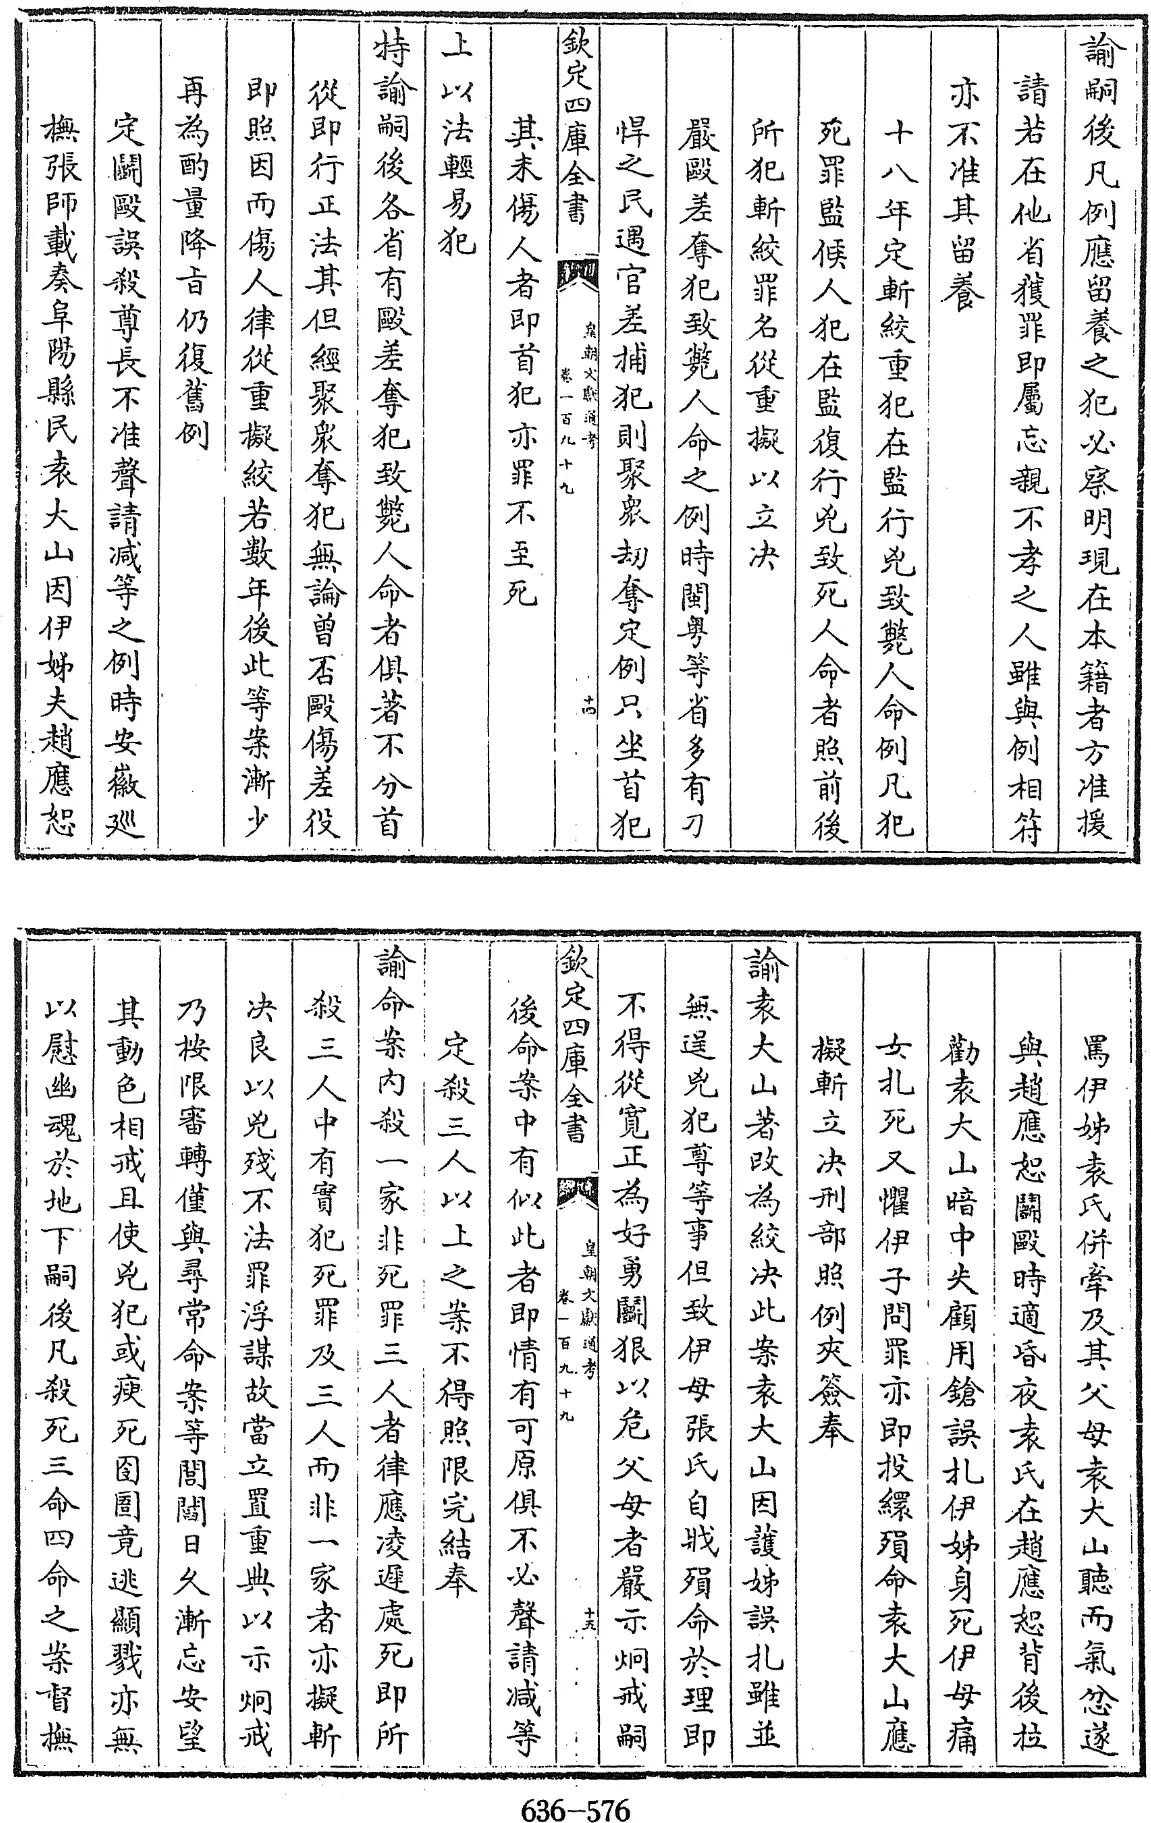 諭嗣後凡例應留養之犯必察明現在本籍者方准援
請若在他省獲罪即屬忘親不孝之人雖與例相符
亦不准其留養
十八年定斬絞重犯在監行兇致斃人命例凡犯
死罪監候人犯在監復行兇致死人命者照前後
所犯斬絞罪名從重擬以立決
嚴毆差奪犯致斃人命之例時閩粵等省多有刀
悍之民遇官差捕犯則聚衆刼奪定例只坐首犯
欽定四庫全書
皇朝文獻通考
卷一百九十九
十四
其未傷人者即首犯亦罪不至死
上以法輕易犯
特諭嗣後各省有毆差奪犯致斃人命者俱著不分首
從即行正法其但經聚衆奪犯無論曾否毆傷差役
即照因而傷人律從重擬絞若數年後此等案漸少
再為酌量降旨仍復舊例
定鬭毆誤殺尊長不准聲請减等之例時安徽廵
撫張師載奏阜陽縣民袁大山因伊姊夫趙應恕
罵伊姊袁氏併牽及其父母袁大山聽而氣忿遂
與趙應恕鬭毆時適昏夜袁氏在趙應恕背後拉
勸袁大山暗中失顧用鎗誤扎伊姊身死伊母痛
女扎死又懼伊子問罪亦即投繯殞命袁大山應
擬斬立决刑部照例夾簽奉
諭袁大山著改為絞决此案袁大山因護姊誤扎雖並
無逞兇犯尊等事但致伊母張氏自戕殞命於理即
不得從寬正為好勇鬭狠以危父母者嚴示炯戒嗣
欽定四庫全書
皇朝文獻通考
卷一百九十九
十五
後命案中有似此者即情有可原俱不必聲請减等
定殺三人以上之案不得照限完結奉
諭命案內殺一家非死罪三人者律應凌遲處死即所
殺三人中有實犯死罪及三人而非一家者亦擬斬
决良以兇殘不法罪浮謀故當立置重典以示炯戒
乃按限審轉僅與尋常命案等閭閻日久漸忘安望
其動色相戒且使兇犯或瘐死囹圄竟逃顯戮亦無
以慰幽魂於地下嗣後凡殺死三命四命之案督撫
636-576